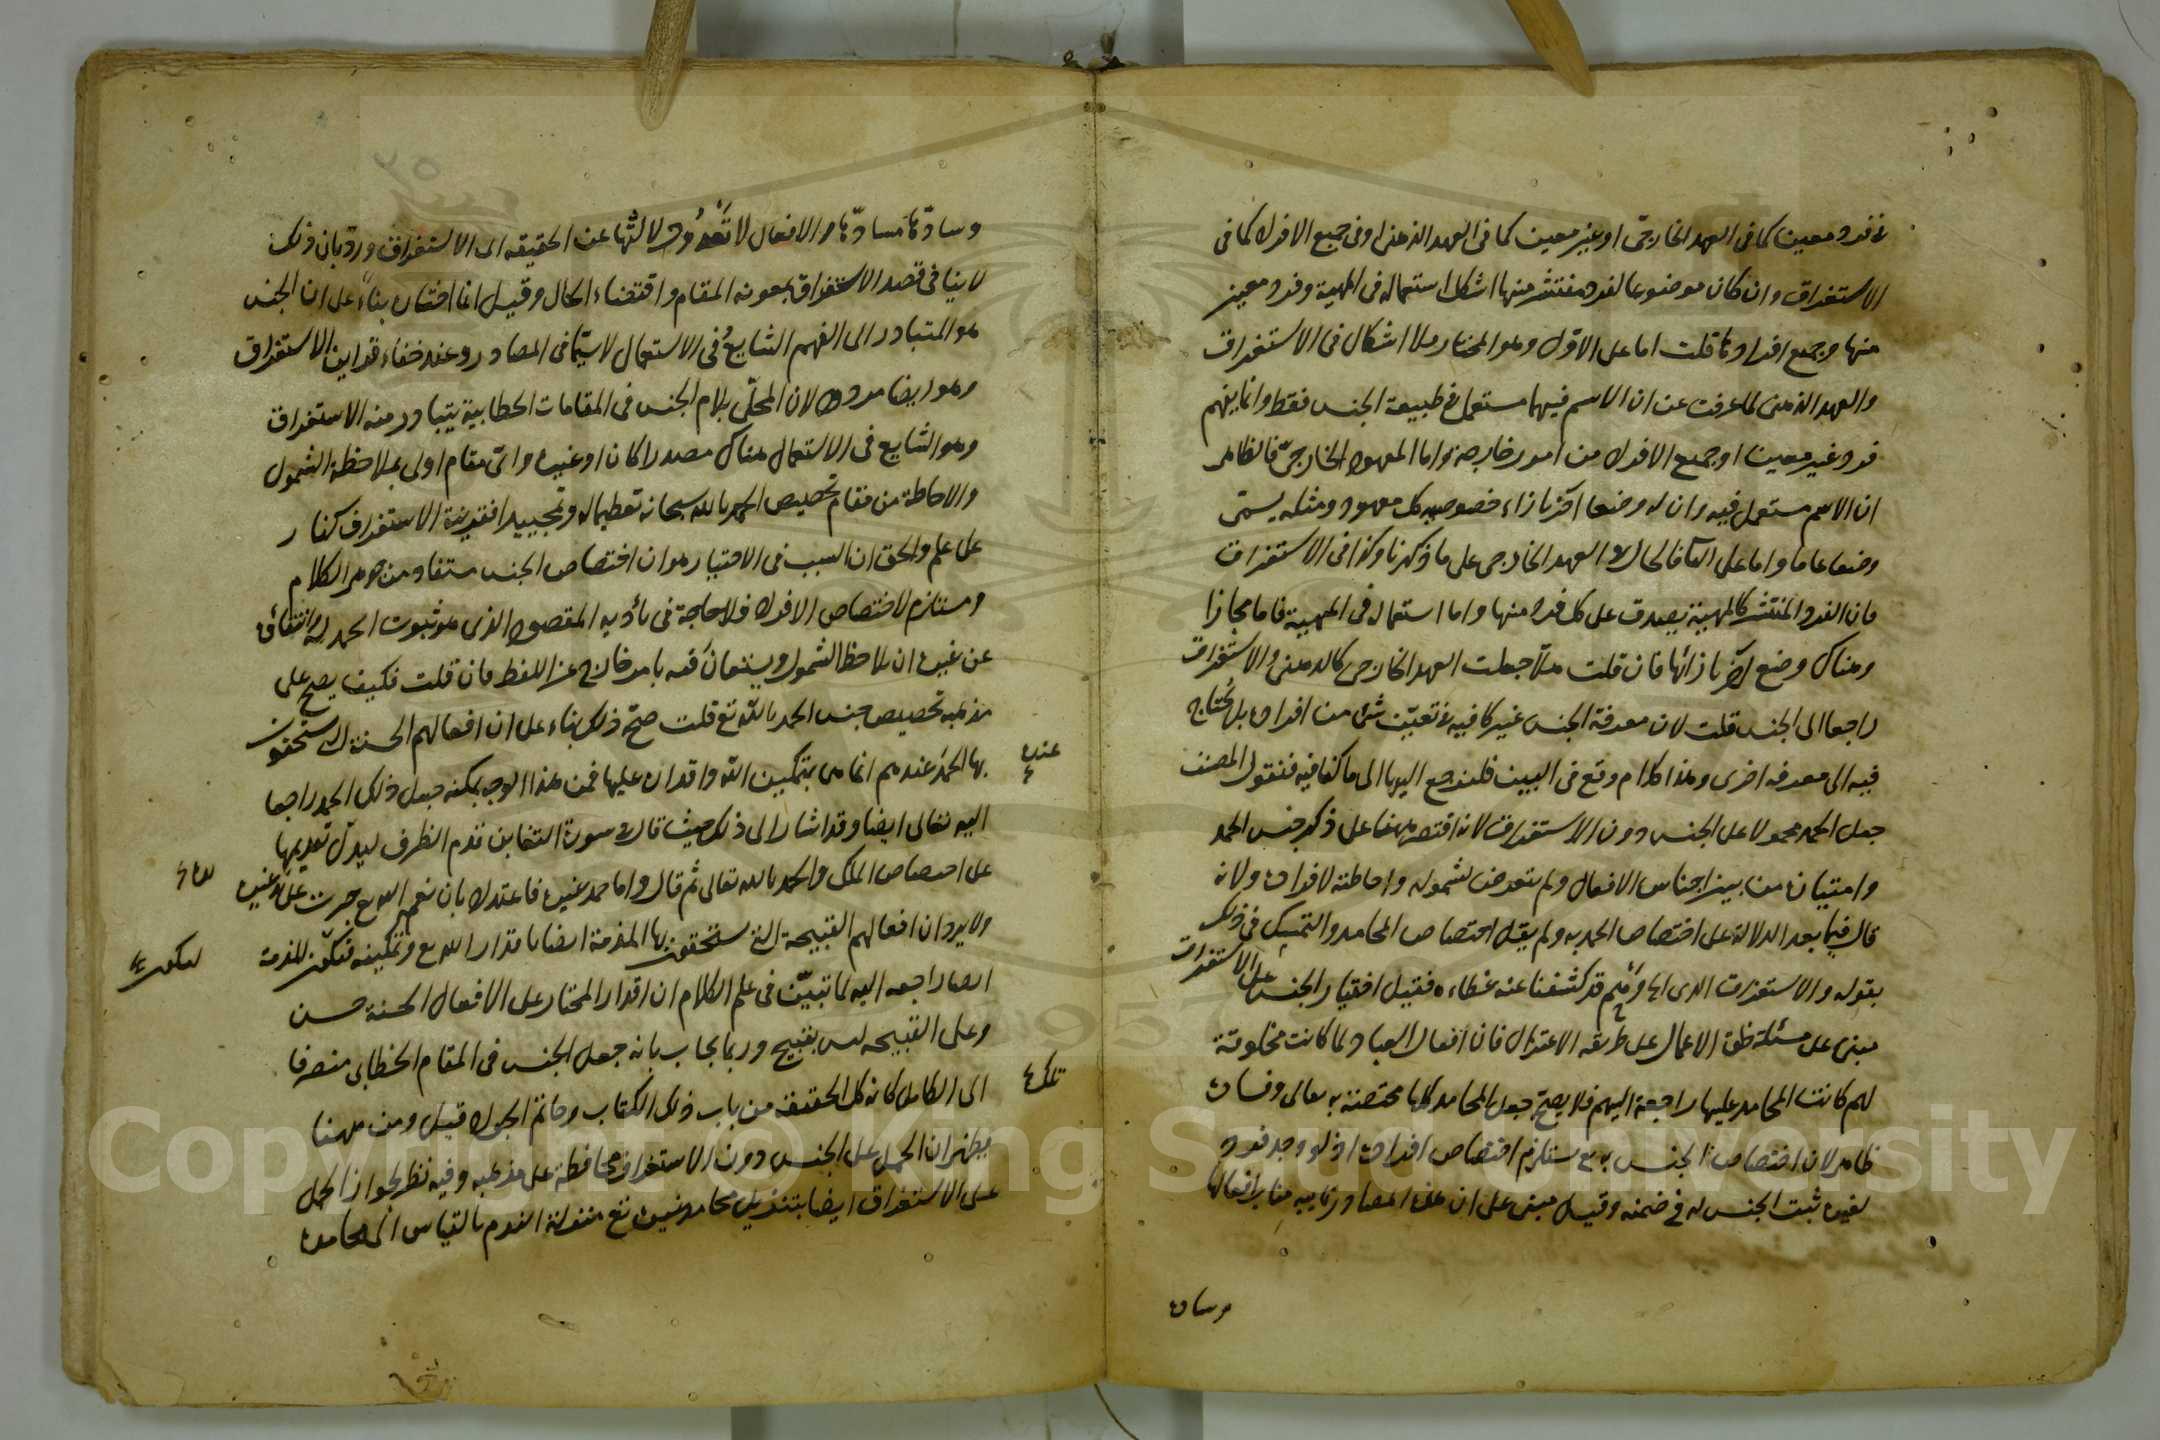 في فرد معين كما في العهد الخارجي او غير معين كما في العهد الذهني او في جميع الافراد كما في
الاستغراق وان كان موضوعا لفرد منتشر منها اشكل استعماله في المهية وفرد معين
منها وجميع افرادها قلت اما على الاول وهو المختار فلا اشكال في الاستغراق
والعهد الذهني لما عرفت من ان الاسم فيهما مستعمل في طبيعة الجنس فقط وانما يفهم
فرد غير معين او جميع الافراد من امور خارجة واما المعهود الخارجي فالظاهر
ان الاسم مستعمل فيه وان له وضعا آخر بازاء خصوصية كل معهود ومثله يسمى
وضعا عاما واما على الثاني فالحال في العهد الخارجي على ما ذكرنا وكذا في الاستغراق
فان الفرد المنتشر كالمهية يصدق على كل فرد منها واما استعماله في المهية فاما مجازا
وهناك وضع آخر بازائها فان قلت هلا جعلت العهد الخارجي كالذهني والاستغراق
راجعا الى الجنس قلت لان معرفة الجنس غير كافية في تعيين شيء من افراده بل يحتاج
فيه الى معرفة اخرى وهذا كلام وقع في البين فلنرجع الى ما كنا فيه فنقول المصنف
جعل الحمد محمولا على الجنس دون الاستغراق لانه اقتصر ههنا على ذكر جنس الحمد
وامتيازه من بين اجناس الافعال ولم يتعرض لشموله واحاطته لافراده ولانه
قال فيما بعد الدلالة على اختصاص الحمد به ولم يقل اختصاص المحامد والتمسك في ذلك
بقوله والاستغراق الذي وهم قد كشفنا عنه غطاءه فقيل اختيار الجنس على الاستغراق
مبني على مسئلة خلق الاعمال على طريقة الاعتزال فان افعال العباد لما كانت مخلوقة
لهم كانت المحامد عليها راجعة اليهم فلا يصح جعل المحامد كلها مختصة به تعالى وفساده
ظاهر لان اختصاص الجنس به تع يستلزم اختصاص افراده اذ لو وجد فرد
لغيره ثبت الجنس له في ضمنه وقيل مبني على ان هذه المصادر نائبة مناب افعالها
وسادة
وسادة مسادها والافعال لا تعدو دلالتها عن الحقيقة الى الاستغراق ورد بان ذلك
لا ينافي قصد الاستغراق بمعونة المقام واقتضاء الحال وقيل انما اختاره بناء على ان الجنس
هو المتبادر الى الفهم الشايع في الاستعمال لا سيما في المصادر وعند خفاء قراين الاستغراق
وهو ايضا مردود لان المحلى بلام الجنس في المقامات الخطابية يتبادر منه الاستغراق
وهو الشايع في الاستعمال هناك مصدرا كان او غيره واي مقام اولى بملاحظة الشمول
والاحاطة من مقام تخصيص الحمد بالله سبحانه تعظيما له وتمجيدا فقرينة الاستغراق كنار
على علم والحق ان السبب في الاختيار هو ان اختصاص الجنس مستفاد من جوهر الكلام
ومستلزم لاختصاص الافراد فلا حاجة في تأدية المقصود الذي هو ثبوت الحمد لله وانتفاؤه
عن غيره ان يلاحظ الشمول ويستعان فيه بامر خارج عن اللفظ فان قلت فكيف يصح على
مذهبه تخصيص جنس الحمد بالله تع قلت صح ذلك بناء على ان افعالهم الحسنة التي يستحقون
عنده
بها الحمد عندهم انما هي بتمكين الله واقداره عليها فمن هذا الوجه يمكنه جعل ذلك الحمد راجعا
اليه تعالى ايضا وقد اشار الى ذلك حيث قال في سورة التغابن قدم الظرف ليدل تقديمها
على اختصاص الملك والحمد بالله تعالى ثم قال واما حمد غيره فاعتداد بان نعمة الله تع جرت على يد غيره
ولا يرد ان افعالهم القبيحة التي يستحقون بها المذمة ايضا باقدار الله تع وتمكينه فتكون المذمة
ايضا راجعة اليه لما تبين في علم الكلام ان اقدار المختار على الافعال الحسنة حسن
وعلى القبيحة ليس بقبيح وربما يجاب بانه جعل الجنس في المقام الخطابي منصرفا
تلك
الى الكامل كانه كل الحقيقة من باب ذلك الكتاب وحاتم الجواد قيل ومن ههنا
يظهر ان الحمل على الجنس دون الاستغراق محافظة على مذهبه وفيه نظر لجواز الحمل
على الاستغراق ايضا بتنزيل محامد غيره تع منزلة العدم بالقياس الى محامده